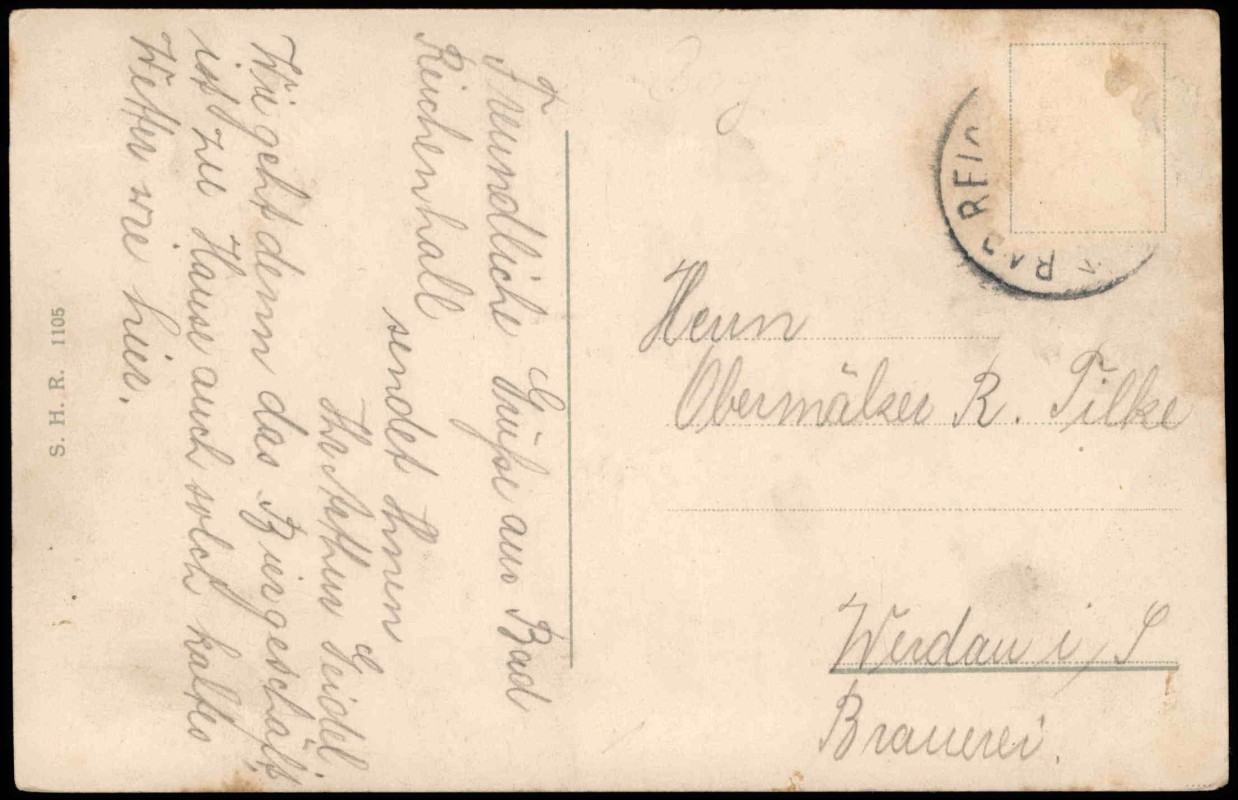 Freundliche Grüße aus Bad
Reichenhall
sendet Ihnen
Ihr Arthur Seidel.
Wie geht denn das Biergeschäft,
ist zu Hause auch solch kaltes
Wetter wie hier.
S. H. R. 1105
BAD REIC
Herrn
Obermälzer R. Tilke
Werdau i/S
Brauerei.